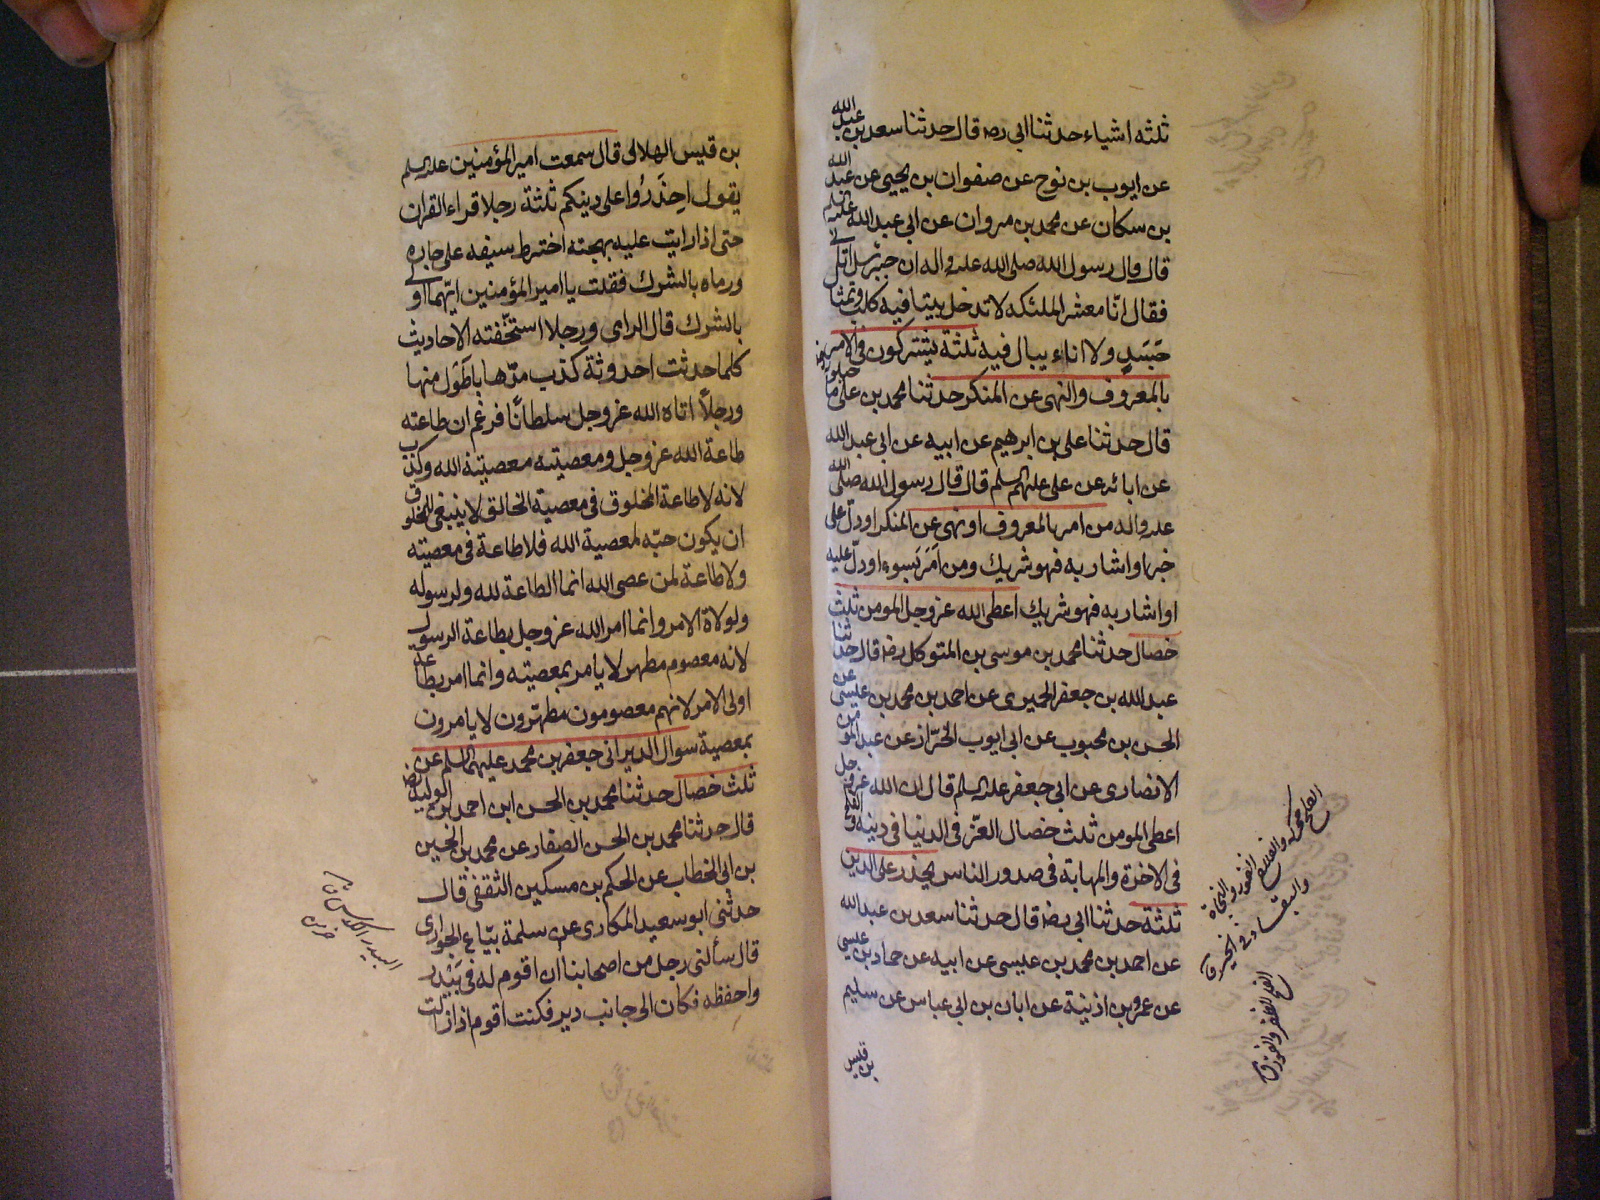 ثلثه اشياء حدثنا ابي رضه قال حدثنا سعد بن عبد الله
عن ايوب بن نوح عن صفوان بن يحيى عن عبد الله
بن سكان عن محمد بن مروان عن ابي عبد الله عليه السلم
قال قال رسول الله صلى الله عليه واله ان جبرئيل اتاني
فقال انا معشر الملئكه لا تدخل بيتا فيه كلب وتمثا
جسد ولا اناء يبال فيه ثلثة يشتركون في الامر
بالمعروف والنهى عن المنكر حدثنا محمد بن على ما جيلويه
قال حدثنا على بن ابرهيم عن ابيه عن ابى عبد الله
عن ابائه عن على عليهم السلم قال قال رسول الله صلى الله
عليه واله من امر بالمعروف او نهى عن المنكر او دل على
خير او اشار به فهو شريك ومن اَمَرَ بسوء او دلّ عليه
او اشار به فهو شريك اعطى الله عز وجل المومن ثلث
خصال حدثنا محمد بن موسى بن المتوكل رضه قال حدثنا
عبد الله بن جعفر الحميرى عن احمد بن محمد بن عيسى عن
الحسن بن محبوب عن ابى ايوب الخزّاز عن عبد المومن
الانصارى عن ابى جعفر عليه السلم قال ان الله عز وجل
اعطى المومن ثلث خصال العزّ فى الدنيا فى دينه والفلج
فى الاخرة والمهابة فى صدور الناس يحذر على الدين
ثلثة حدثنا ابى رضه قال حدثنا سعد بن عبد الله
عن احمد بن محمد بن عيسى عن ابيه عن حماد بن عيسى
عن عمر بن اذينة عن ابان بن ابى عياس عن سليم
بن قيس
بن قيس الهلالى قال سمعت امير المؤمنين عليه السلم
يقول احذَرُوا على دينكم ثلثة رجلا قراء القران
حتى اذا رايت عليه بهجته اخترط سيفه على جاره
ورماه بالشرك فقلت يا امير المؤمنين ايّهما اولى
بالشرك قال الرامي ورجلا استخفته الاحاديث
كلما حدثت احدوثة كذب مدّها باطول منها
ورجلاً اتاه الله عز وجل سلطانًا فزعم ان طاعته
طاعة الله عز وجل ومعصيته معصيتة الله وكذب
لانه لا طاعة المخلوق فى معصية الخالق لا ينبغى للمخلوق
ان يكون حبّه لمعصية الله فلا طاعة فى معصيته
ولا طاعة لمن عصى الله انما الطاعة لله ولرسوله
ولولاة الامر وانما امر الله عز وجل بطاعة الرسول
لانه معصوم مطهر لا يامر بمعصيته وانما امر بطاعة
اولى الامر لانهم معصومون مطهّرون لا يامرون
بمعصية سوال الديرانى جعفر بن محمد عليهما السلم عن
ثلث خصال حدثنا محمد بن الحسن ابن احمد بن الوليد رضه
قال حدثنا محمد بن الحسن الصفار عن محمد بن الحسين
بن ابى الخطاب عن الحكم بن مسكين الثقفى قال
حدثنى ابو سعيد المكارى عن سلمة بيّاع الجوارى
قال سألنى رجل من اصحابنا ان اقوم له فى بَيْدر
واحفظه فكان الى جانب دير فكنت اقوم اذا زالت